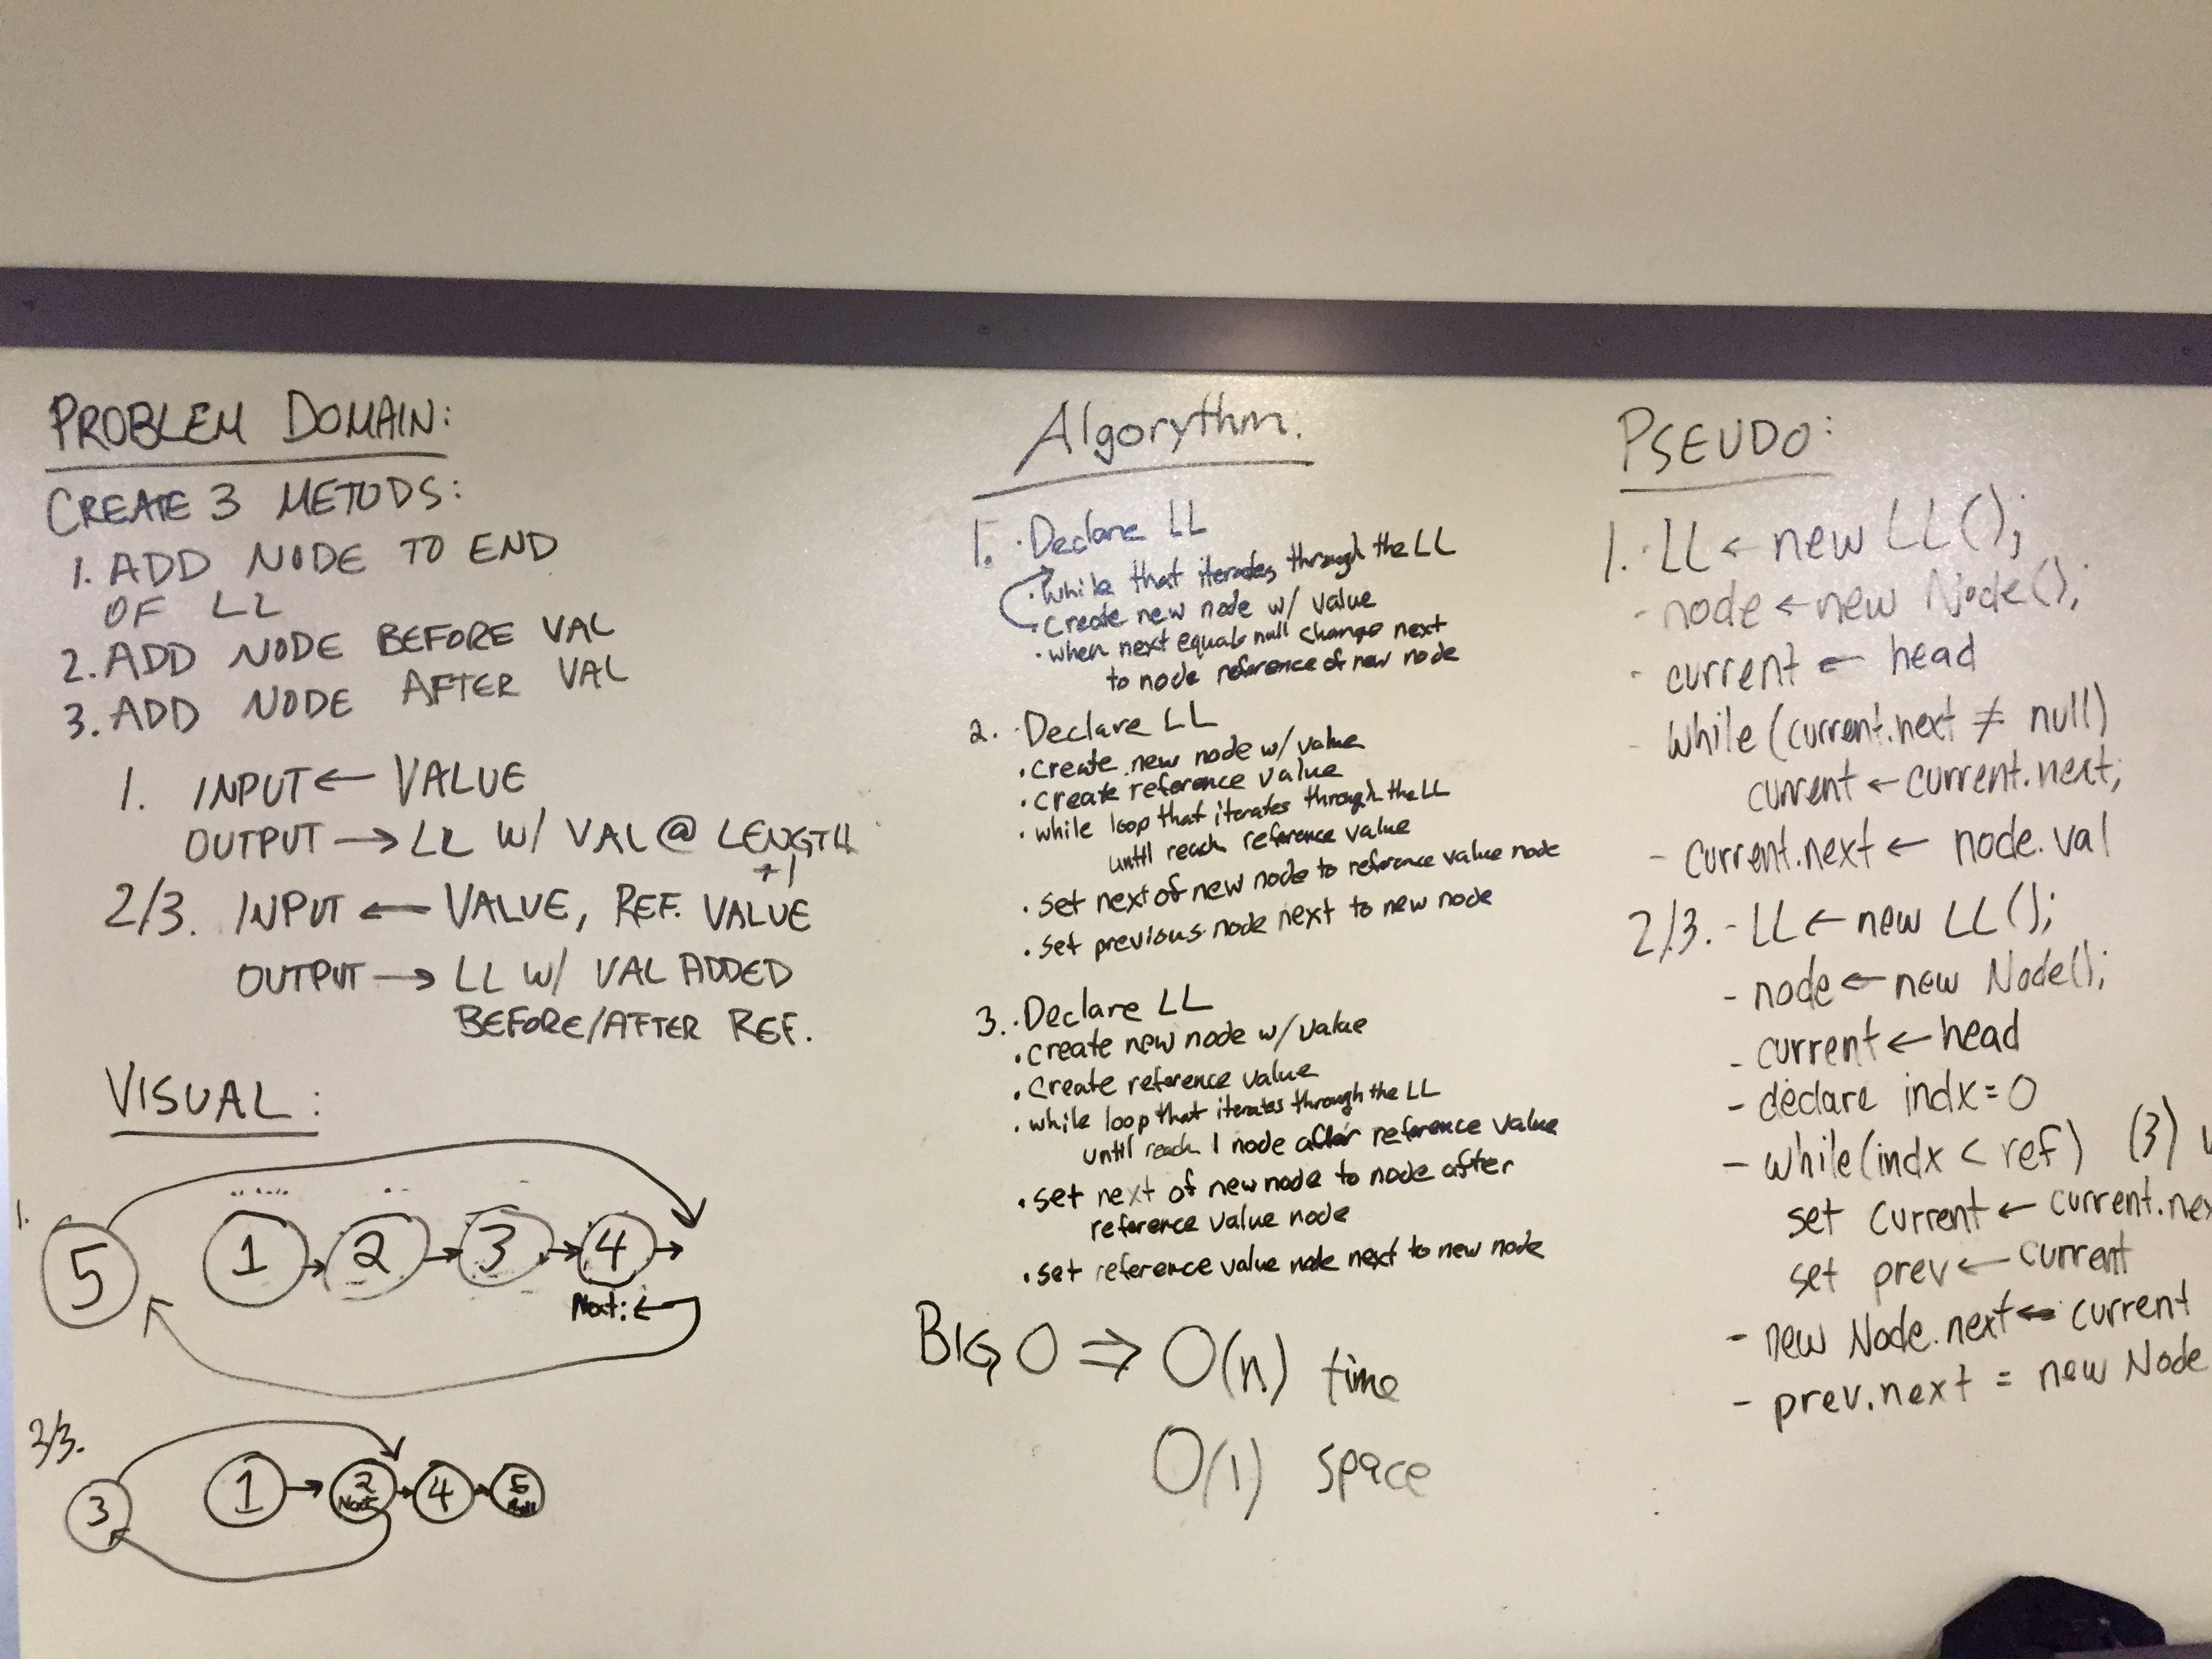 PROBLEM DOMAIN:
CREATE 3 METODS:
1. ADD NODE TO END
OF LL
2. ADD NODE BEFORE VAL
3. ADD NODE AFTER VAL
1. INPUT ← VALUE
OUTPUT → LL W/ VAL @ LENGTH
+1
2/3. INPUT ← VALUE, REF. VALUE
OUTPUT → LL W/ VAL ADDED
BEFORE/AFTER REF.
VISUAL:
1.
5 1 → 2 → 3 → 4 →
Next: ←
2/3.
3 1 → 2 → 4 → 5
Next
Algorythm.
1. · Declare LL
· while that iterates through the LL
· create new node w/ value
· when next equals null change next
to node reference of new node
2. · Declare LL
· create new node w/ value
· create reference value
· while loop that iterates through the LL
until reach reference value
· set next of new node to reference value node
· set previous node next to new node
3. · Declare LL
· create new node w/ value
· create reference value
· while loop that iterates through the LL
until reach 1 node after reference value
· set next of new node to node after
reference value node
· set reference value node next to new node
BIG O ⇒ O(n) time
O(1) space
PSEUDO:
1. · LL ← new LL();
- node ← new Node();
- current ← head
- while (current.next ≠ null)
current ← current.next;
- current.next ← node.val
2/3. - LL ← new LL();
- node ← new Node();
- current ← head
- declare indx = 0
- while (indx < ref) (3)
set current ← current.nex
set prev ← current
- new Node.next ← current
- prev.next = new Node